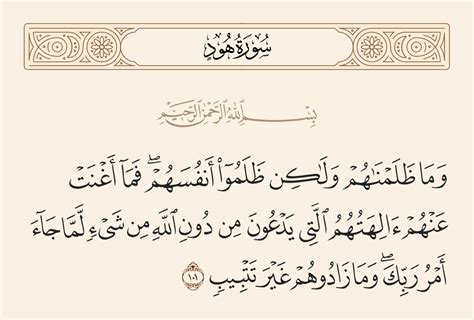 سُورَةُ هُودٍ
بِسْمِ ٱللَّهِ ٱلرَّحْمَٰنِ ٱلرَّحِيمِ
وَمَا ظَلَمْنَٰهُمْ وَلَٰكِن ظَلَمُوٓا۟ أَنفُسَهُمْ ۖ فَمَآ أَغْنَتْ
عَنْهُمْ ءَالِهَتُهُمُ ٱلَّتِى يَدْعُونَ مِن دُونِ ٱللَّهِ مِن شَىْءٍ لَّمَّا جَآءَ
أَمْرُ رَبِّكَ ۖ وَمَا زَادُوهُمْ غَيْرَ تَتْبِيبٍ ١٠١